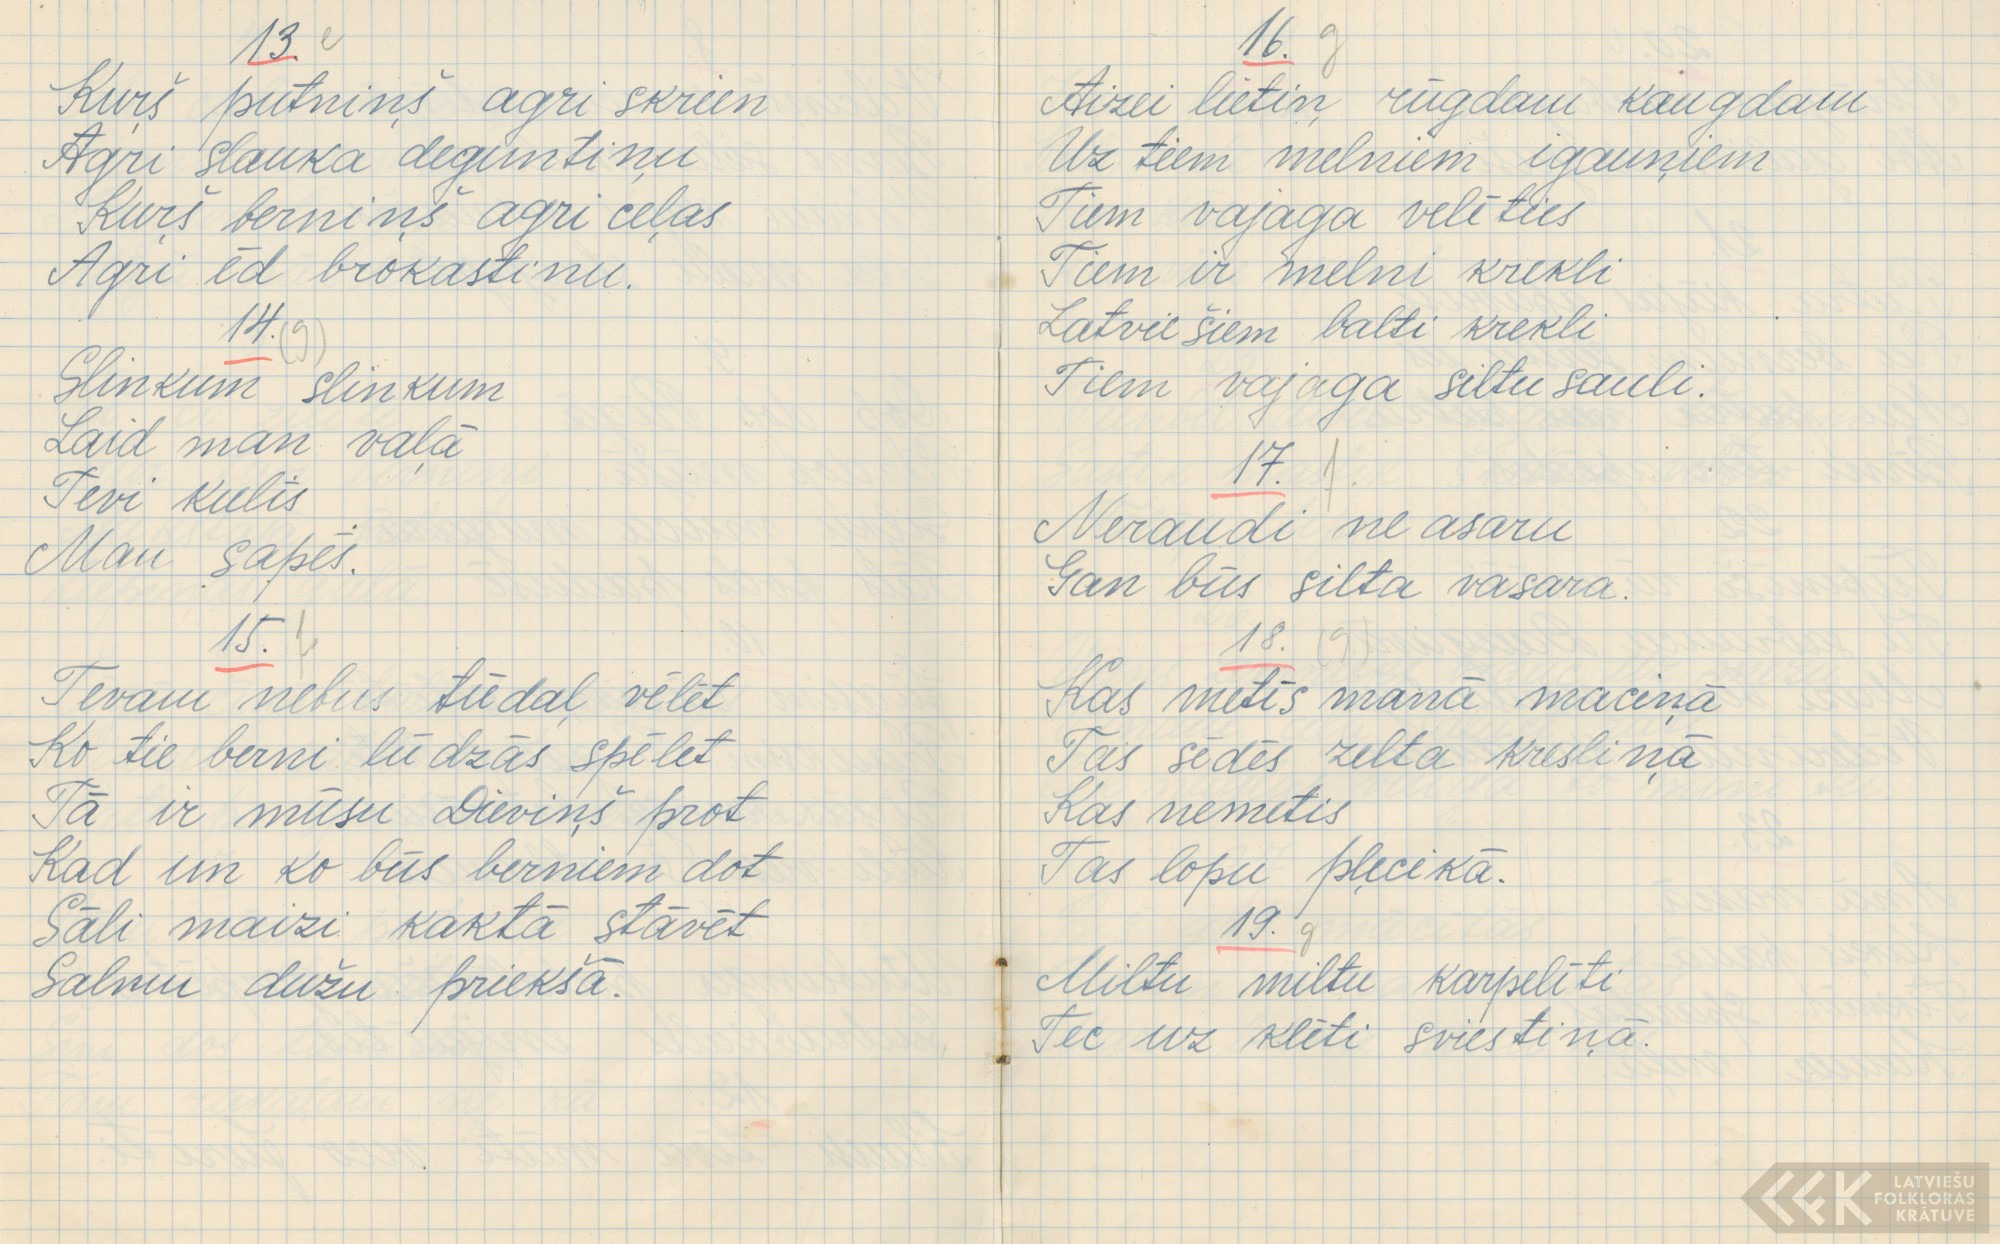 13. e
Kuŗš putniņš agri skrien
Agri slauka deguntiņu
Kuŗš berniņš agri ceļas
Agri ēd brokastinu.
14. (g)
Slinkum slinkum
Laid man vaļā
Tevi kulīs
Man sapēs.
15.
Tevam nebus tūdaļ vēlēt
Ko tie berni lūdzās spēlet
Tā ir mūsu Dieviņš prot
Kad un ko būs berniem dot
Sāli maizi kaktā stāvēt
Salmu dužu priekšā.
16. g
Aizei lietiņ rūgdam kaugdam
Uz tiem melniem igauņiem
Tiem vajaga velēties
Tiem ir melni krekli
Latviešiem balti krekli
Tiem vajaga siltu sauli.
17. f
Neraudi ne asaru
Gan būs silta vasara.
18. (g)
Kas metīs manā maciņā
Tas sēdēs zelta kresliņā
Kas nemetis
Tas lopu pļecikā.
19. g
Miltu miltu karpelīti
Tec uz klēti sviestiņā.
LATVIEŠU
FOLKLORAS
KRĀTUVE